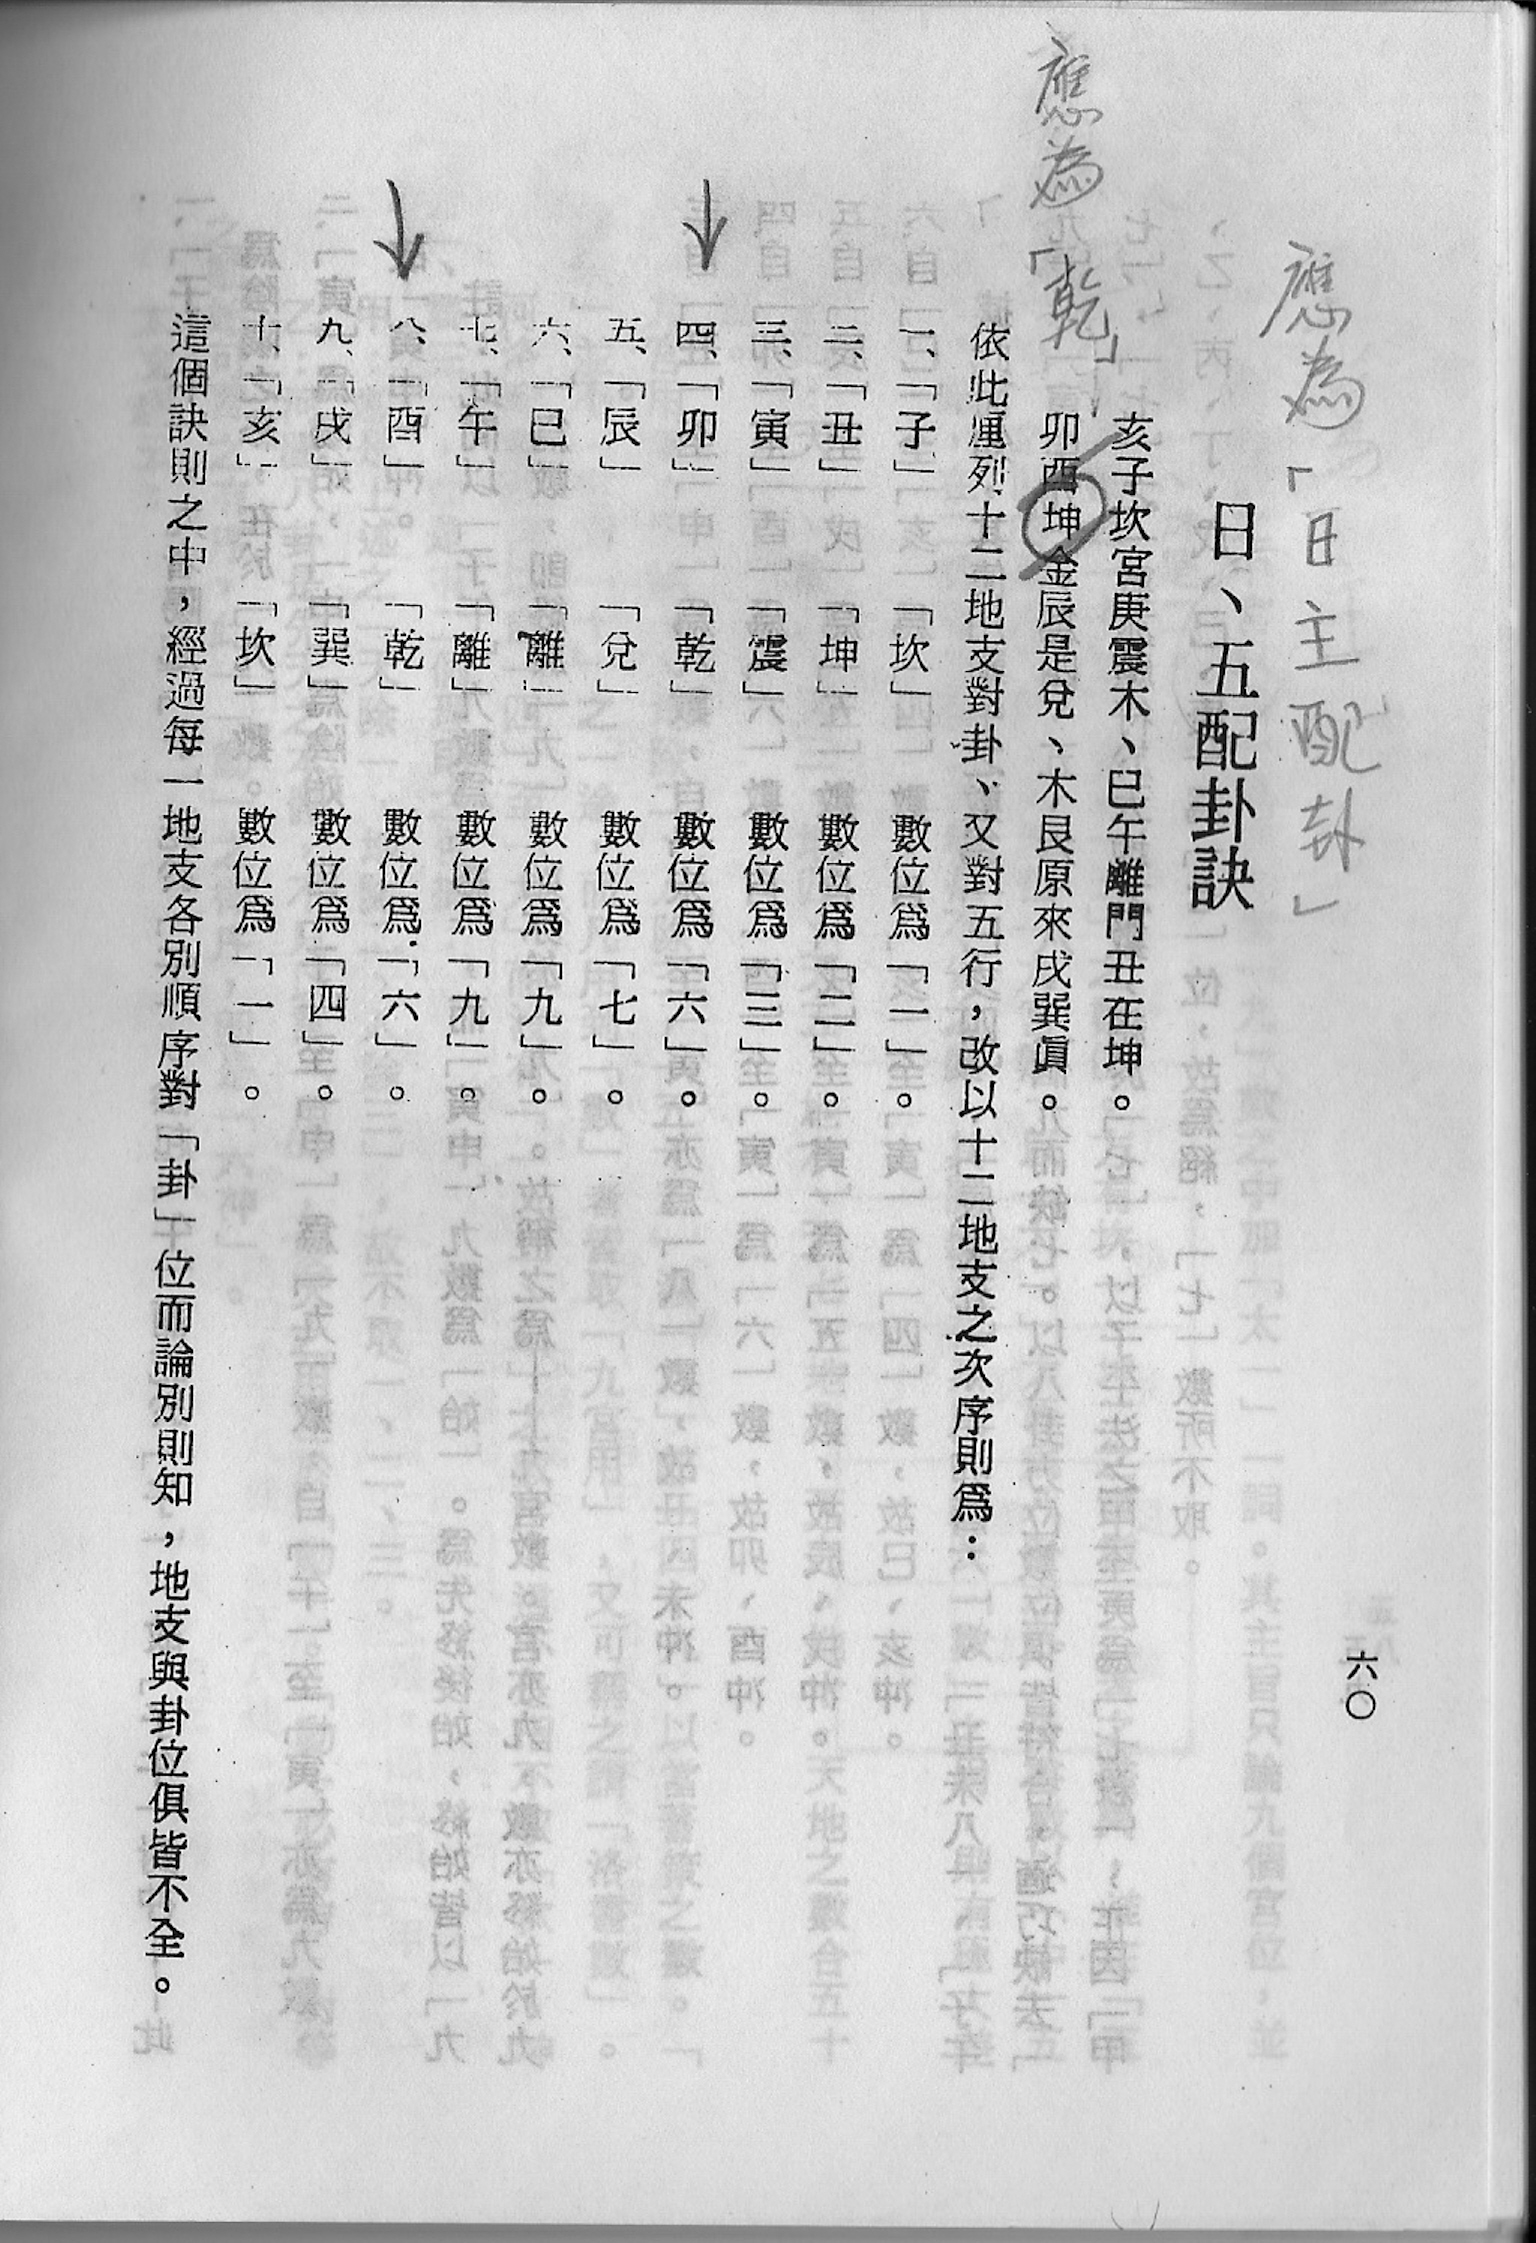 應為「日主配卦」
日、五配卦訣
亥子坎宮庚震木、巳午離門丑在坤。
應為「乾」
卯酉坤金辰是兌、木艮原來戌巽眞。
依此運列十二地支對卦、又對五行，改以十二地支之次序則爲：
一、「子」「坎」數位爲「一」。
二、「丑」「坤」數位爲「二」。
三、「寅」「震」數位爲「三」。
四、「卯」「乾」數位爲「六」。
五、「辰」「兌」數位爲「七」。
六、「巳」「離」數位爲「九」。
七、「午」「離」數位爲「九」。
八、「酉」「乾」數位爲「六」。
九、「戌」「巽」數位爲「四」。
十、「亥」「坎」數位爲「一」。
這個訣則之中，經過每一地支各別順序對「卦」位而論別則知，地支與卦位俱皆不全。
六〇